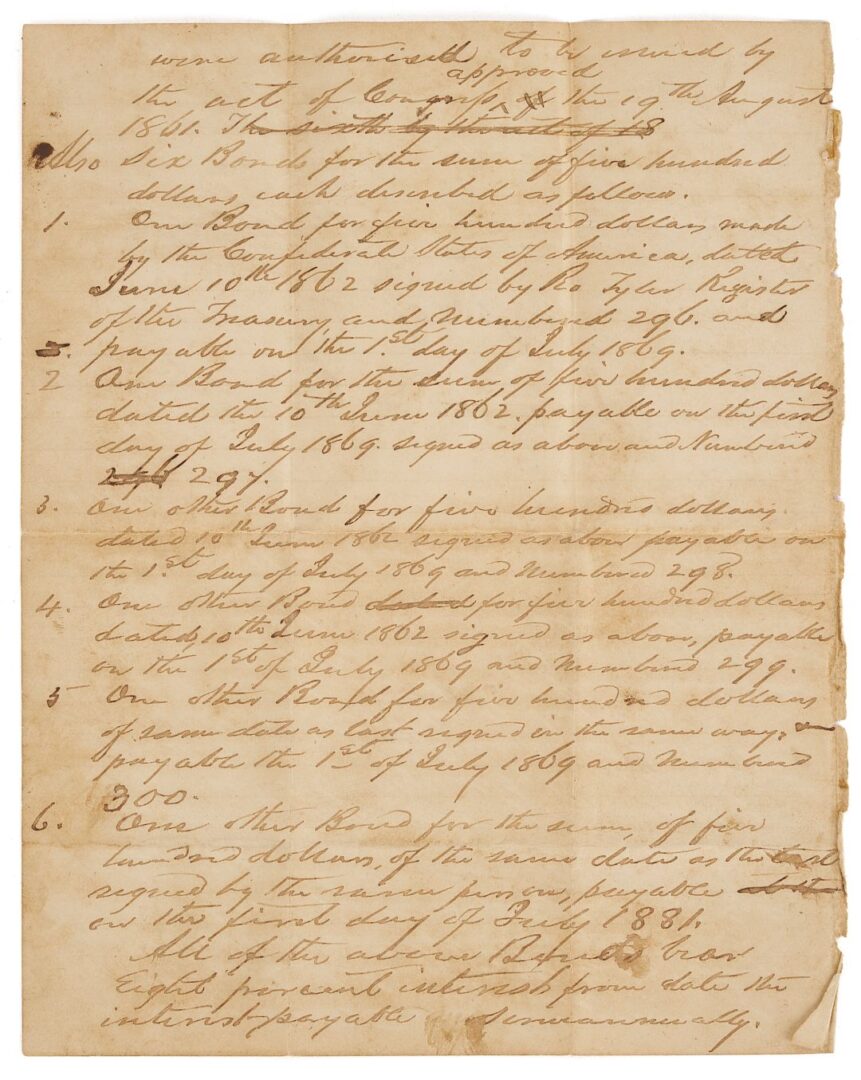 were authorised to be issued by
approved
the act of Congress, of the 19th August
1861. The sixth by the act of 18
Also Six Bonds for the sum of five hundred
dollars each described as follows.
1. One Bond for five hundred dollars made
by the Confederate States of America, dated
June 10th 1862 signed by Ro Tyler Register
of the Treasury, and Numbered 296. and
payable on the 1.st day of July 1869.
2 One Bond for the sum of five hundred dollars
dated the 10th June 1862. payable on the first
day of July 1869. signed as above and Numbered
296 297.
3. One other Bond for five hundred dollars
dated 10th June 1862 signed as above payable on
the 1.st day of July 1869 and numbered 298.
4. One other Bond dated for five hundred dollars
dated, 10th June 1862 signed as above, payable
on the 1st of July 1869 and numbered 299.
5 One other Bond for five hundred dollars
of same date as last signed in the same way, &
payable the 1st of July 1869 and numbered
300.
6. One other Bond for the sum, of five
hundred dollars, of the same date as the last
signed by the same person, payable
on the first day of July 1881.
All of the above Bonds bear
Eight percent interest from date the
interest payable semiannually.